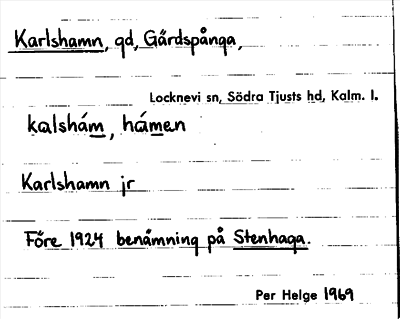 Karlshamn, gd, Gärdspånga,
Locknevi sn, Södra Tjusts hd, Kalm. l.
kalshám, hámen
Karlshamn jr
Före 1924 benämning på Stenhaga.
Per Helge 1969